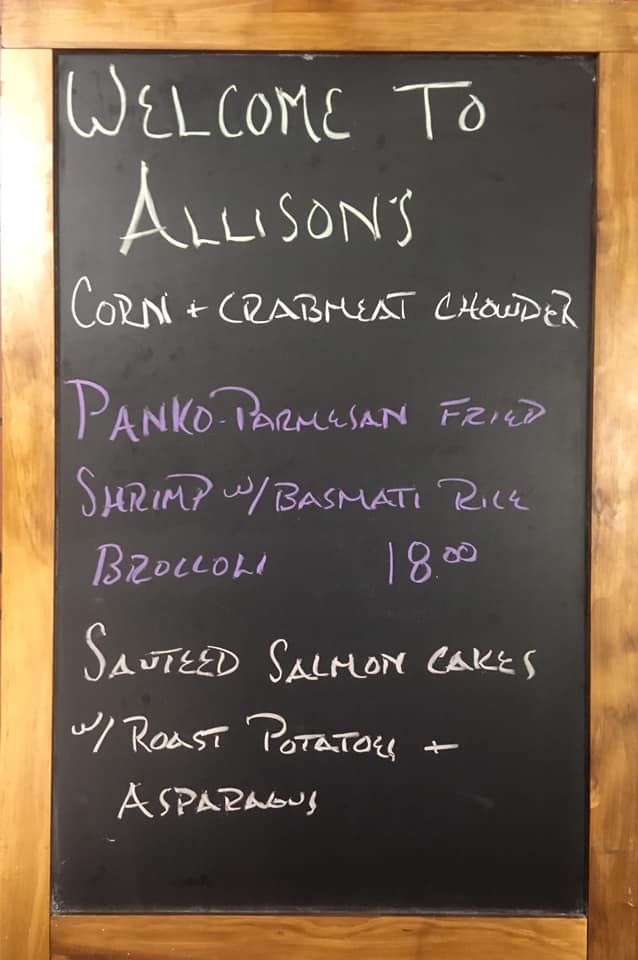 WELCOME TO
ALLISON'S
CORN + CRABMEAT CHOWDER
PANKO-PARMESAN FRIED
SHRIMP W/BASMATI RICE
BROCCOLI 18.00
SAUTEED SALMON CAKES
W/ ROAST POTATOES +
ASPARAGUS